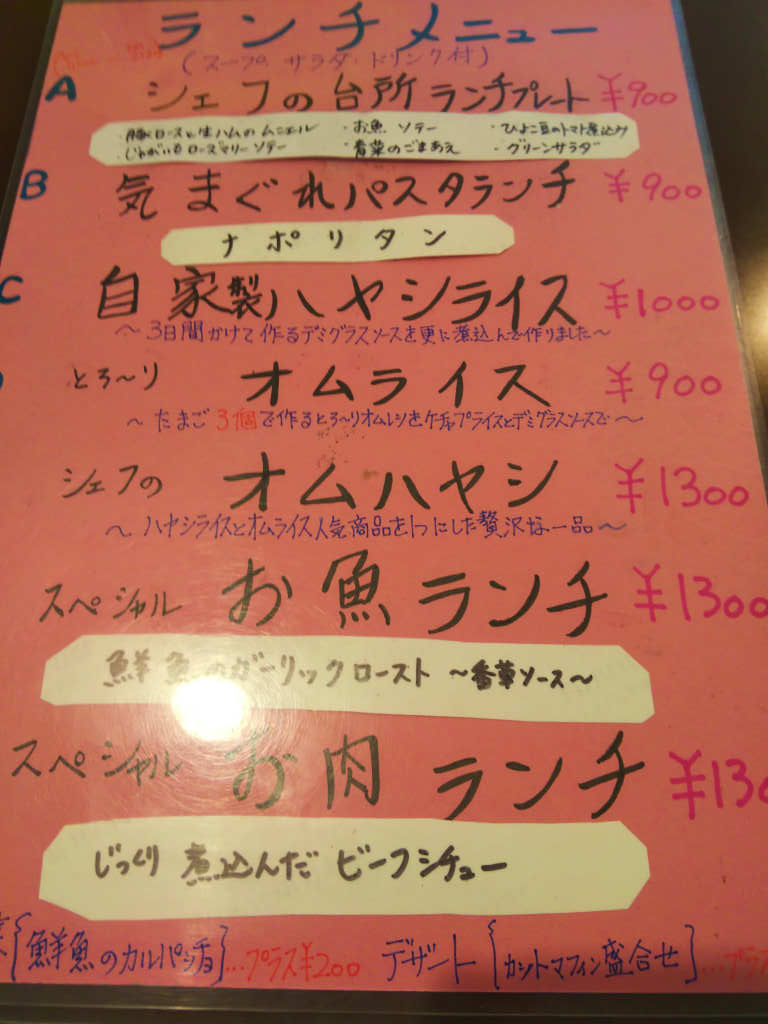 ランチメニュー
(スープ、サラダ・ドリンク付)
A シェフの台所 ランチプレート ¥900
・豚ロースと生ハムのムニエル ・お魚 ソテー ・ひよこ豆のトマト煮込み
・じゃがいもローズマリーソテー ・青菜のごまあえ ・グリーンサラダ
B 気まぐれパスタランチ ¥900
ナポリタン
C 自家製ハヤシライス ¥1000
〜3日間かけて作るデミグラスソースを更に煮込んで作りました〜
とろ〜り オムライス ¥900
〜たまご3個で作るとろ〜りオムレツをケチャップライスとデミグラスソースで〜
シェフの オムハヤシ ¥1300
〜ハヤシライスとオムライス人気商品を1つにした贅沢な一品〜
スペシャル お魚ランチ ¥1300
鮮魚のガーリックロースト 〜香草ソース〜
スペシャル お肉ランチ ¥130
じっくり煮込んだビーフシチュー
[鮮魚のカルパッチョ]...プラス¥200 デザート [カットマフィン盛合せ]...プラス